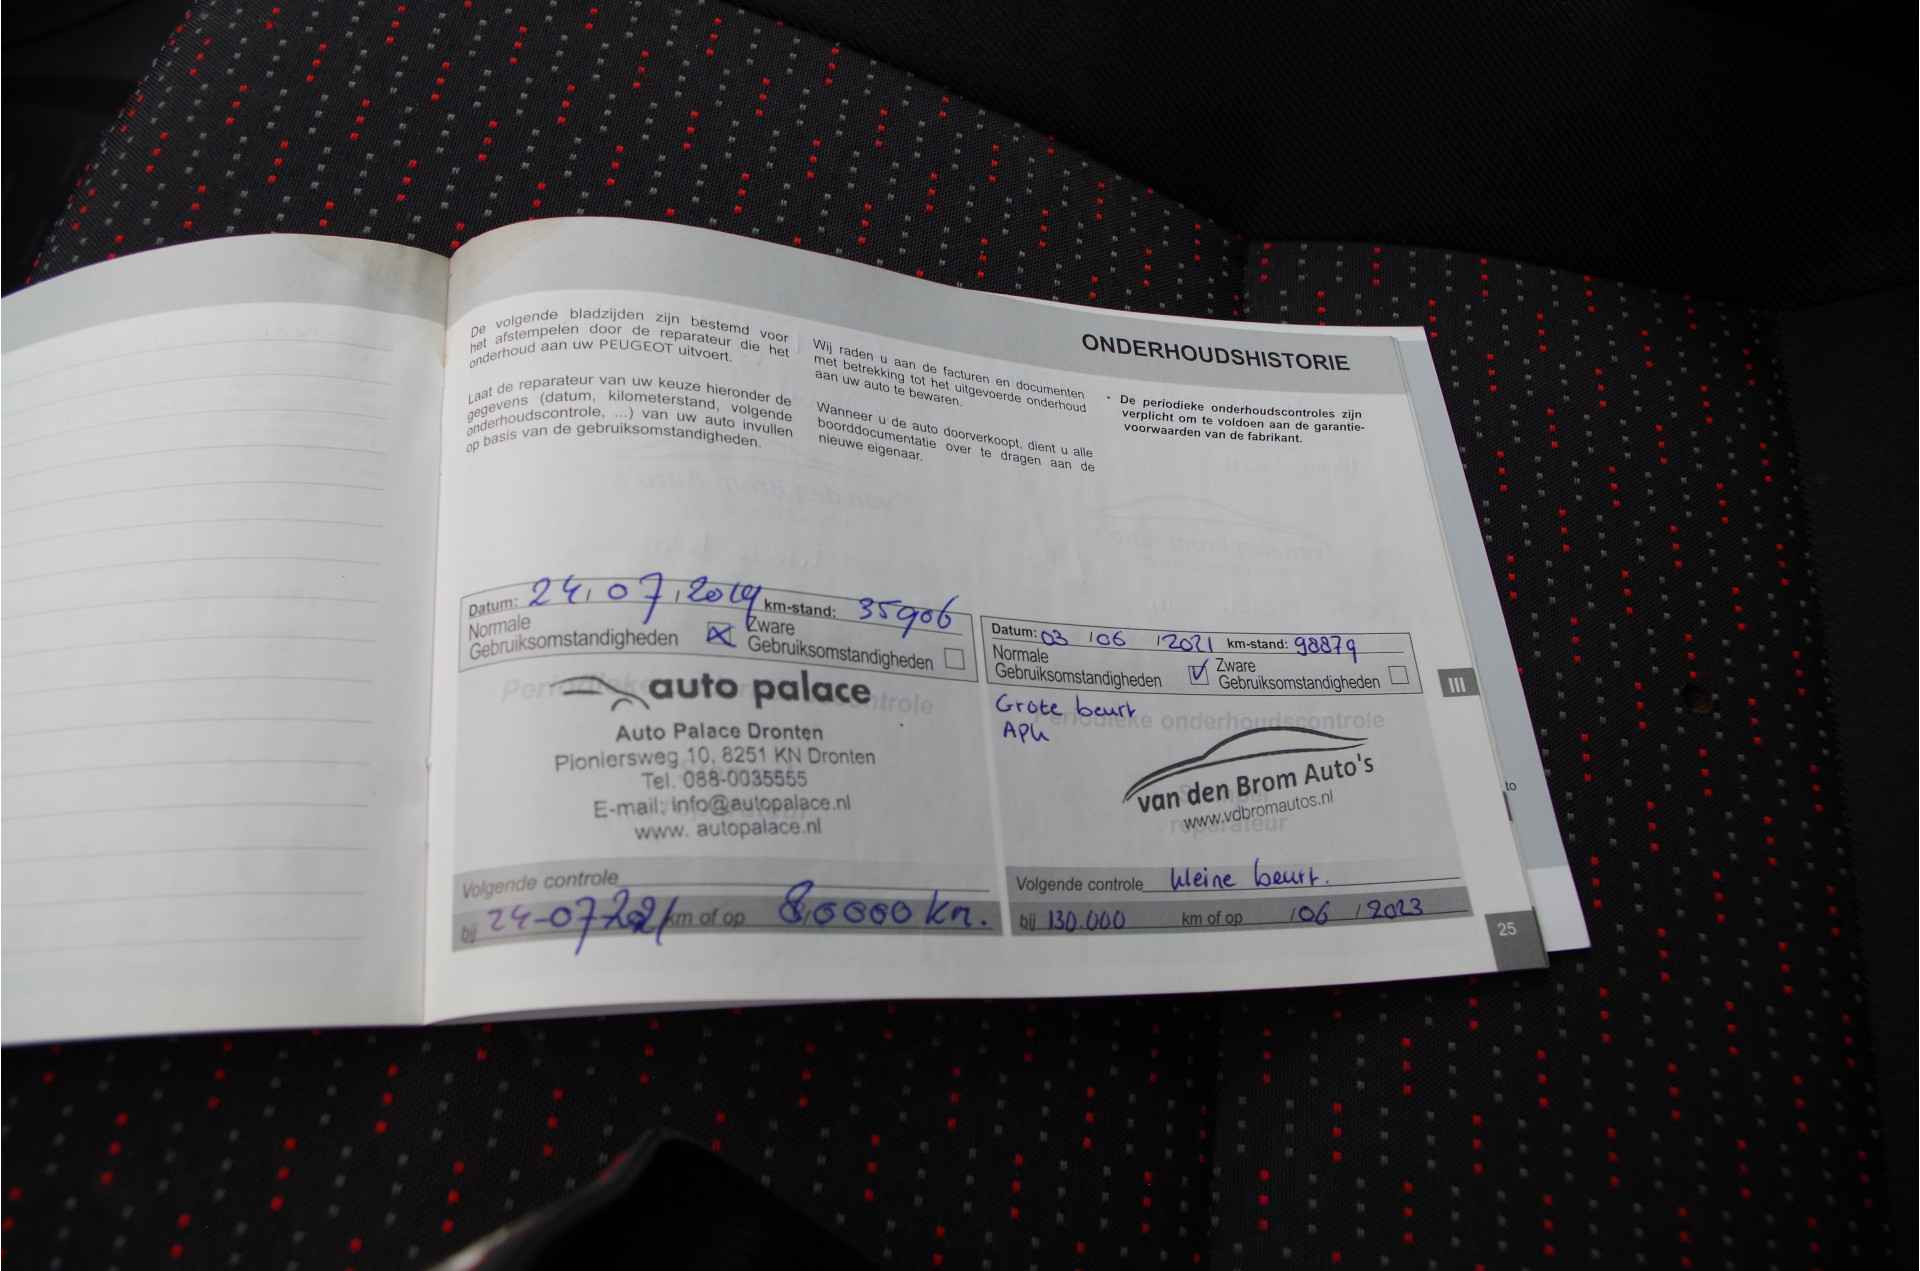 ONDERHOUDSHISTORIE
De volgende bladzijden zijn bestemd voor
het afstempelen door de reparateur die het
onderhoud aan uw PEUGEOT uitvoert.
Laat de reparateur van uw keuze hieronder de
gegevens (datum, kilometerstand, volgende
onderhoudscontrole, ...) van uw auto invullen
op basis van de gebruiksomstandigheden.
Wij raden u aan de facturen en documenten
met betrekking tot het uitgevoerde onderhoud
aan uw auto te bewaren.
Wanneer u de auto doorverkoopt, dient u alle
boorddocumentatie over te dragen aan de
nieuwe eigenaar.
• De periodieke onderhoudscontroles zijn
verplicht om te voldoen aan de garantie-
voorwaarden van de fabrikant.
Datum: 24/07/2019 km-stand: 35906
Normale Zware
Gebruiksomstandigheden Gebruiksomstandigheden
Periodieke onderhoudscontrole
auto palace
Auto Palace Dronten
Pioniersweg 10, 8251 KN Dronten
Tel. 088-0035555
E-mail: info@autopalace.nl
www. autopalace.nl
Volgende controle
bij 24-07-2021 km of op 80000 km.
Datum: 03/06/2021 km-stand: 98879
Normale Zware
Gebruiksomstandigheden Gebruiksomstandigheden
Grote beurt
Periodieke onderhoudscontrole
APK
van den Brom Auto's
www.vdbromautos.nl
reparateur
Volgende controle kleine beurt.
bij 130.000 km of op /06/2023
III
to
25